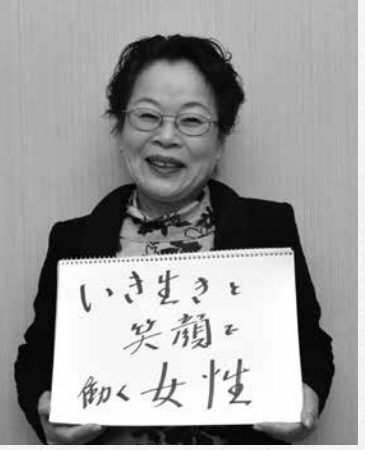 いき生きと
笑顔で
働く女性